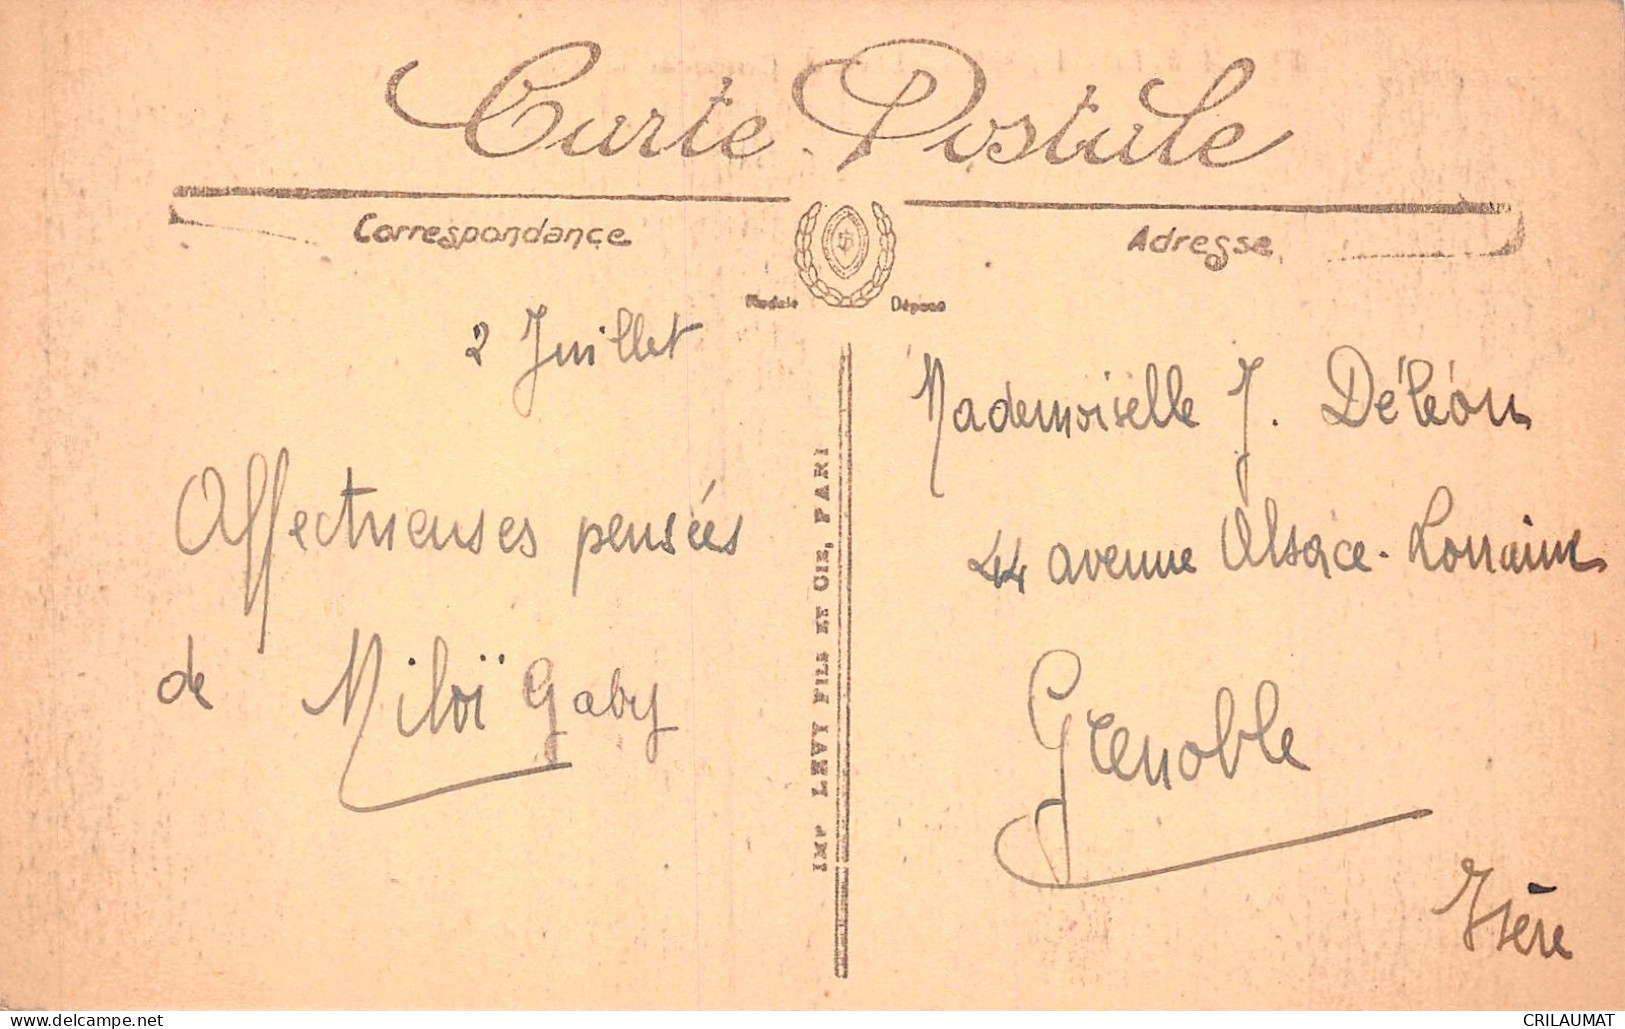 Carte Postale
Correspondance
Adresse
Modèle Déposé
2 Juillet
Affectueuses pensées
de Miloï Gaby
IMP LEVY FILS ET CIE, PARI
Mademoiselle J. Déléon
44 avenue Alsace-Lorraine
Grenoble
Isère
delcampe.net
CRILAUMAT